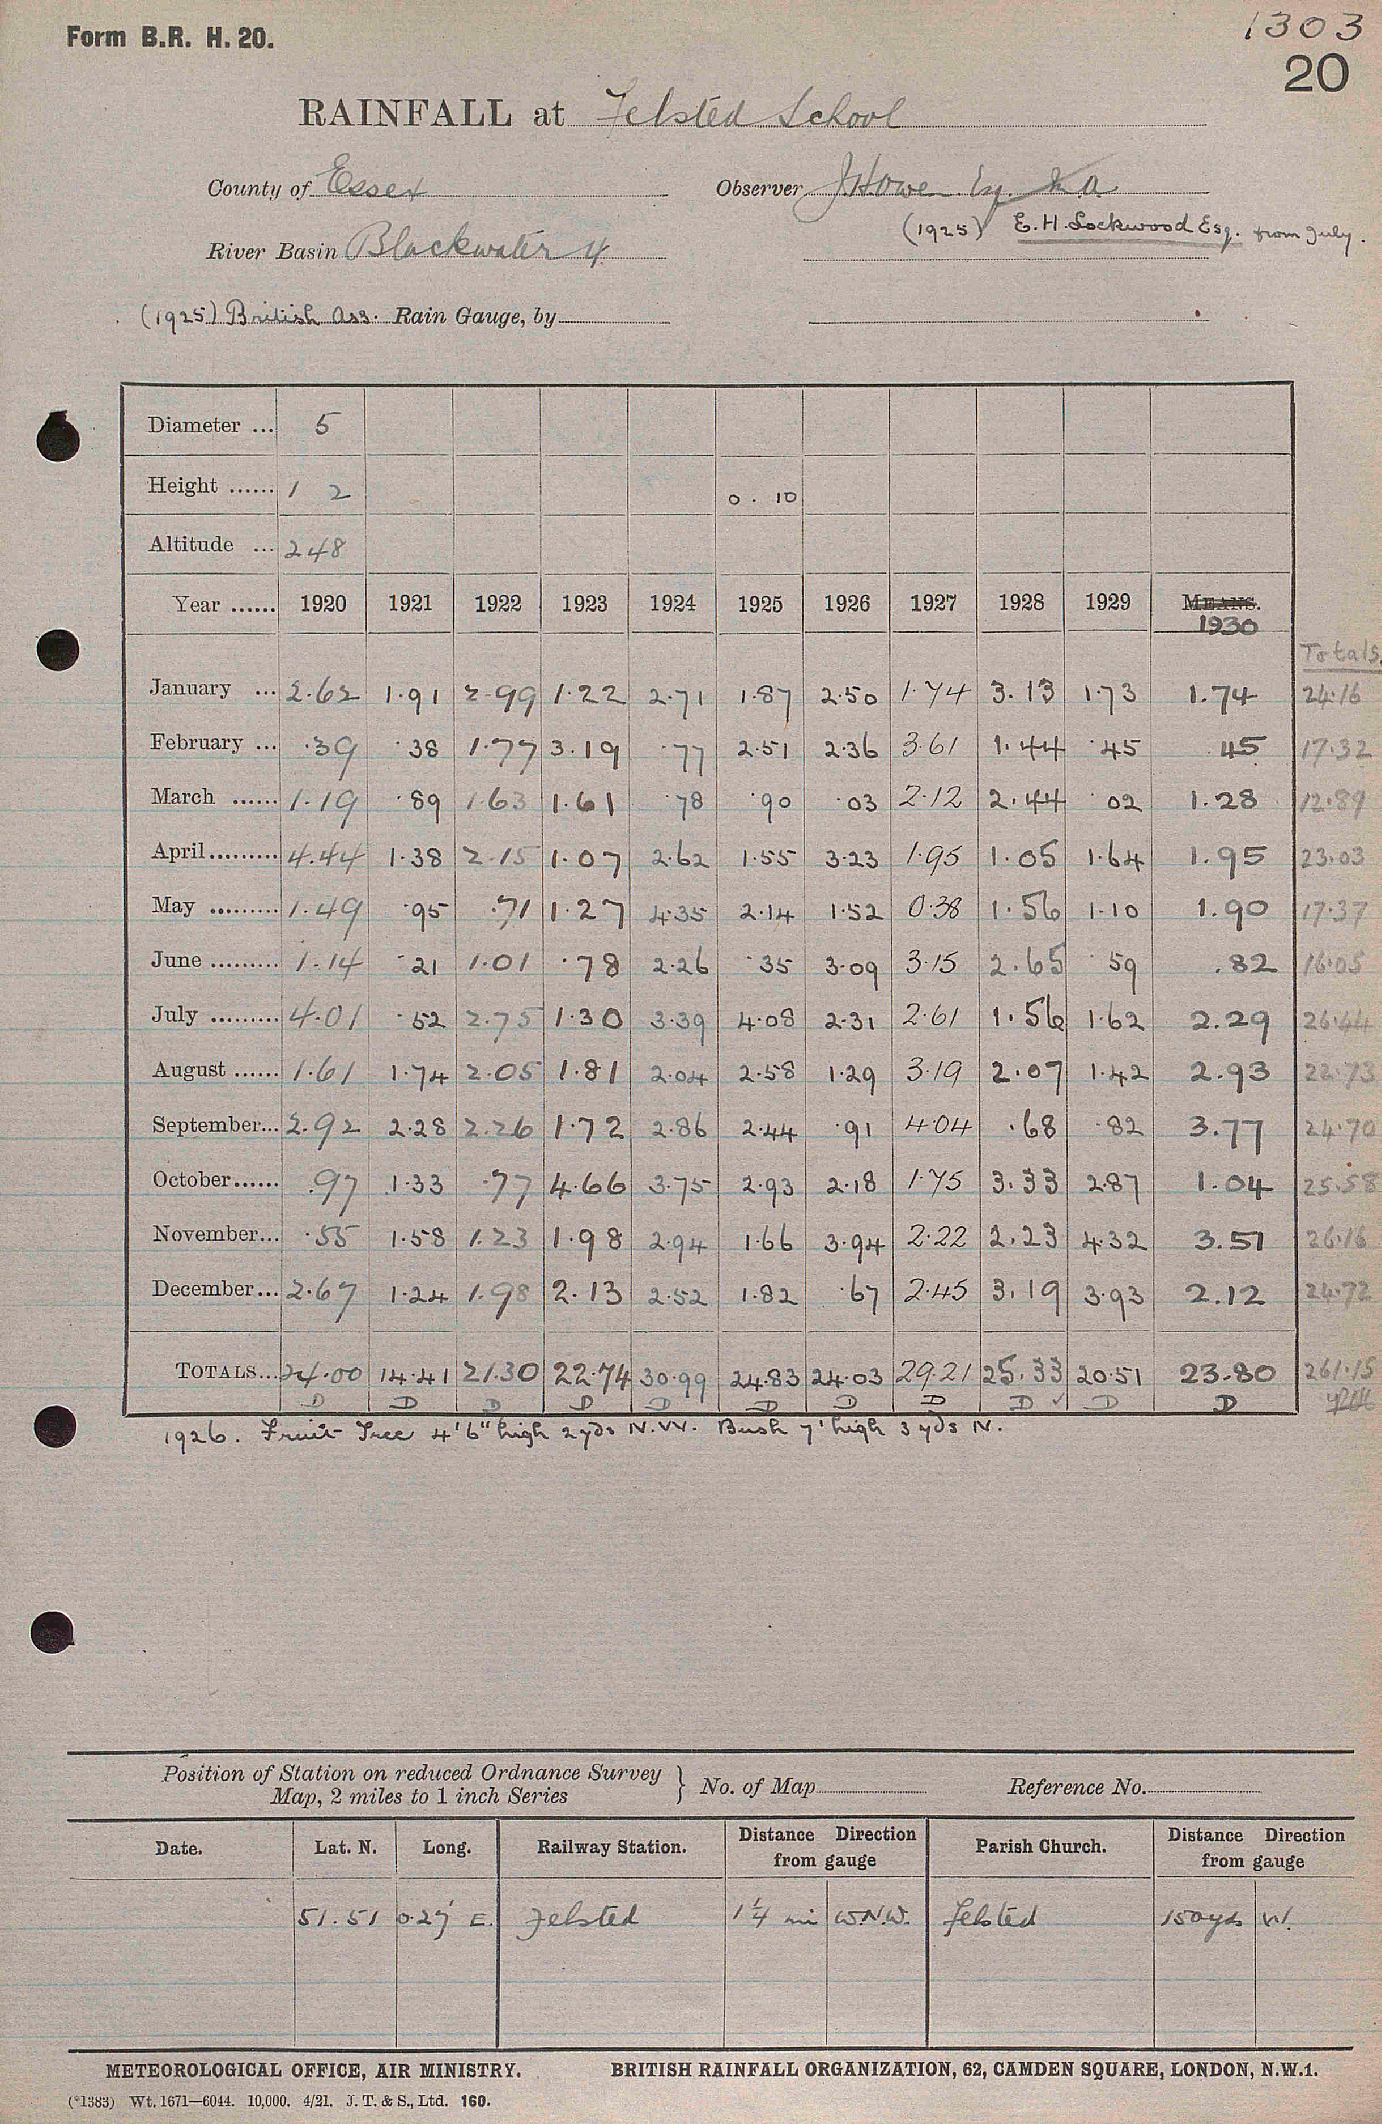 Form B.R. H. 20.
1303
20
RAINFALL at Felsted School
County of Essex Observer J Howe Esq. M.A
(1925) E. H. Lockwood Esq. from July.
River Basin Blackwater 4
(1925) British Ass. Rain Gauge, by
Diameter ... 5
Height ...... 1 2 0 . 10
Altitude ... 248
Year ...... 1920 1921 1922 1923 1924 1925 1926 1927 1928 1929 MEANS.
1930
Totals.
January ... 2.62 1.91 2.99 1.22 2.71 1.87 2.50 1.74 3.13 1.73 1.74 24.16
February ... .39 .38 1.77 3.19 .77 2.51 2.36 3.61 1.44 .45 .45 17.32
March ...... 1.19 .89 1.63 1.61 .78 .90 .03 2.12 2.44 .02 1.28 12.89
April......... 4.44 1.38 2.15 1.07 2.62 1.55 3.23 1.95 1.05 1.64 1.95 23.03
May ......... 1.49 .95 .71 1.27 4.35 2.14 1.52 0.38 1.56 1.10 1.90 17.37
June ......... 1.14 .21 1.01 .78 2.26 .35 3.09 3.15 2.65 .59 .82 16.05
July ......... 4.01 .52 2.75 1.30 3.39 4.08 2.31 2.61 1.56 1.62 2.29 26.44
August ...... 1.61 1.74 2.05 1.81 2.04 2.58 1.29 3.19 2.07 1.42 2.93 22.73
September... 2.92 2.28 2.26 1.72 2.86 2.44 .91 4.04 .68 .82 3.77 24.70
October...... .97 1.33 .77 4.66 3.75 2.93 2.18 1.75 3.33 2.87 1.04 25.58
November... .55 1.58 1.23 1.98 2.94 1.66 3.94 2.22 2.23 4.32 3.51 26.16
December... 2.67 1.24 1.98 2.13 2.52 1.82 .67 2.45 3.19 3.93 2.12 24.72
TOTALS... 24.00 14.41 21.30 22.74 30.99 24.83 24.03 29.21 25.33 20.51 23.80 261.15
D D D D D D D D D ✓ D D
1926. Fruit Tree 4'6" high 2 yds N.W. Bush 7' high 3 yds N.
Position of Station on reduced Ordnance Survey
Map, 2 miles to 1 inch Series } No. of Map Reference No.
Date. Lat. N. Long. Railway Station. Distance Direction from gauge Parish Church. Distance Direction from gauge
51.51 0.27' E. Felsted 1 1/4 mi W.N.W. Felsted 150 yds W.
METEOROLOGICAL OFFICE, AIR MINISTRY. BRITISH RAINFALL ORGANIZATION, 62, CAMDEN SQUARE, LONDON, N.W.1.
(*1383) Wt. 1671—6044. 10,000. 4/21. J. T. & S., Ltd. 160.